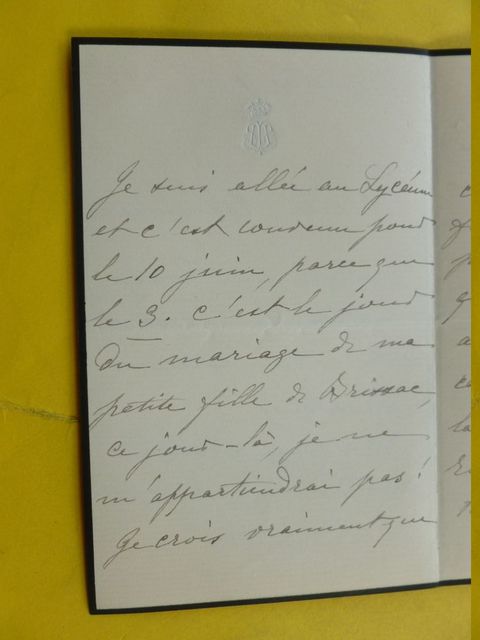 Je suis allée au Lycéum
et c'est convenu pour
le 10 juin, parce que
le 3. c'est le jour
du mariage de ma
petite fille de Brissac,
ce jour-là, je ne
m'appartiendrai pas!
Je crois vraiment que